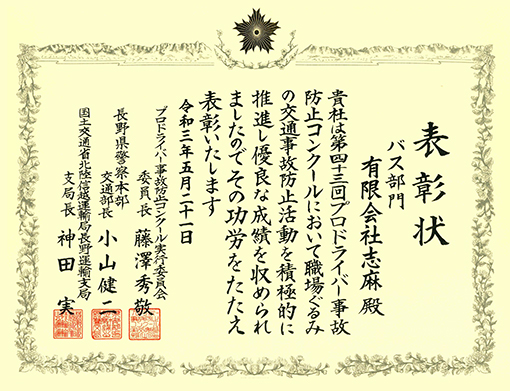 表彰状
バス部門
有限会社志麻 殿
貴社は第四十三回プロドライバー事故
防止コンクールにおいて職場ぐるみ
の交通事故防止活動を積極的に
推進し優良な成績を収められ
ましたのでその功労をたたえ
表彰いたします
令和三年五月二十一日
プロドライバー事故防止コンクール実行委員会
委員長 藤澤秀敬
長野県警察本部
交通部長 小山健二
国土交通省北陸信越運輸局長野運輸支局
支局長 神田実